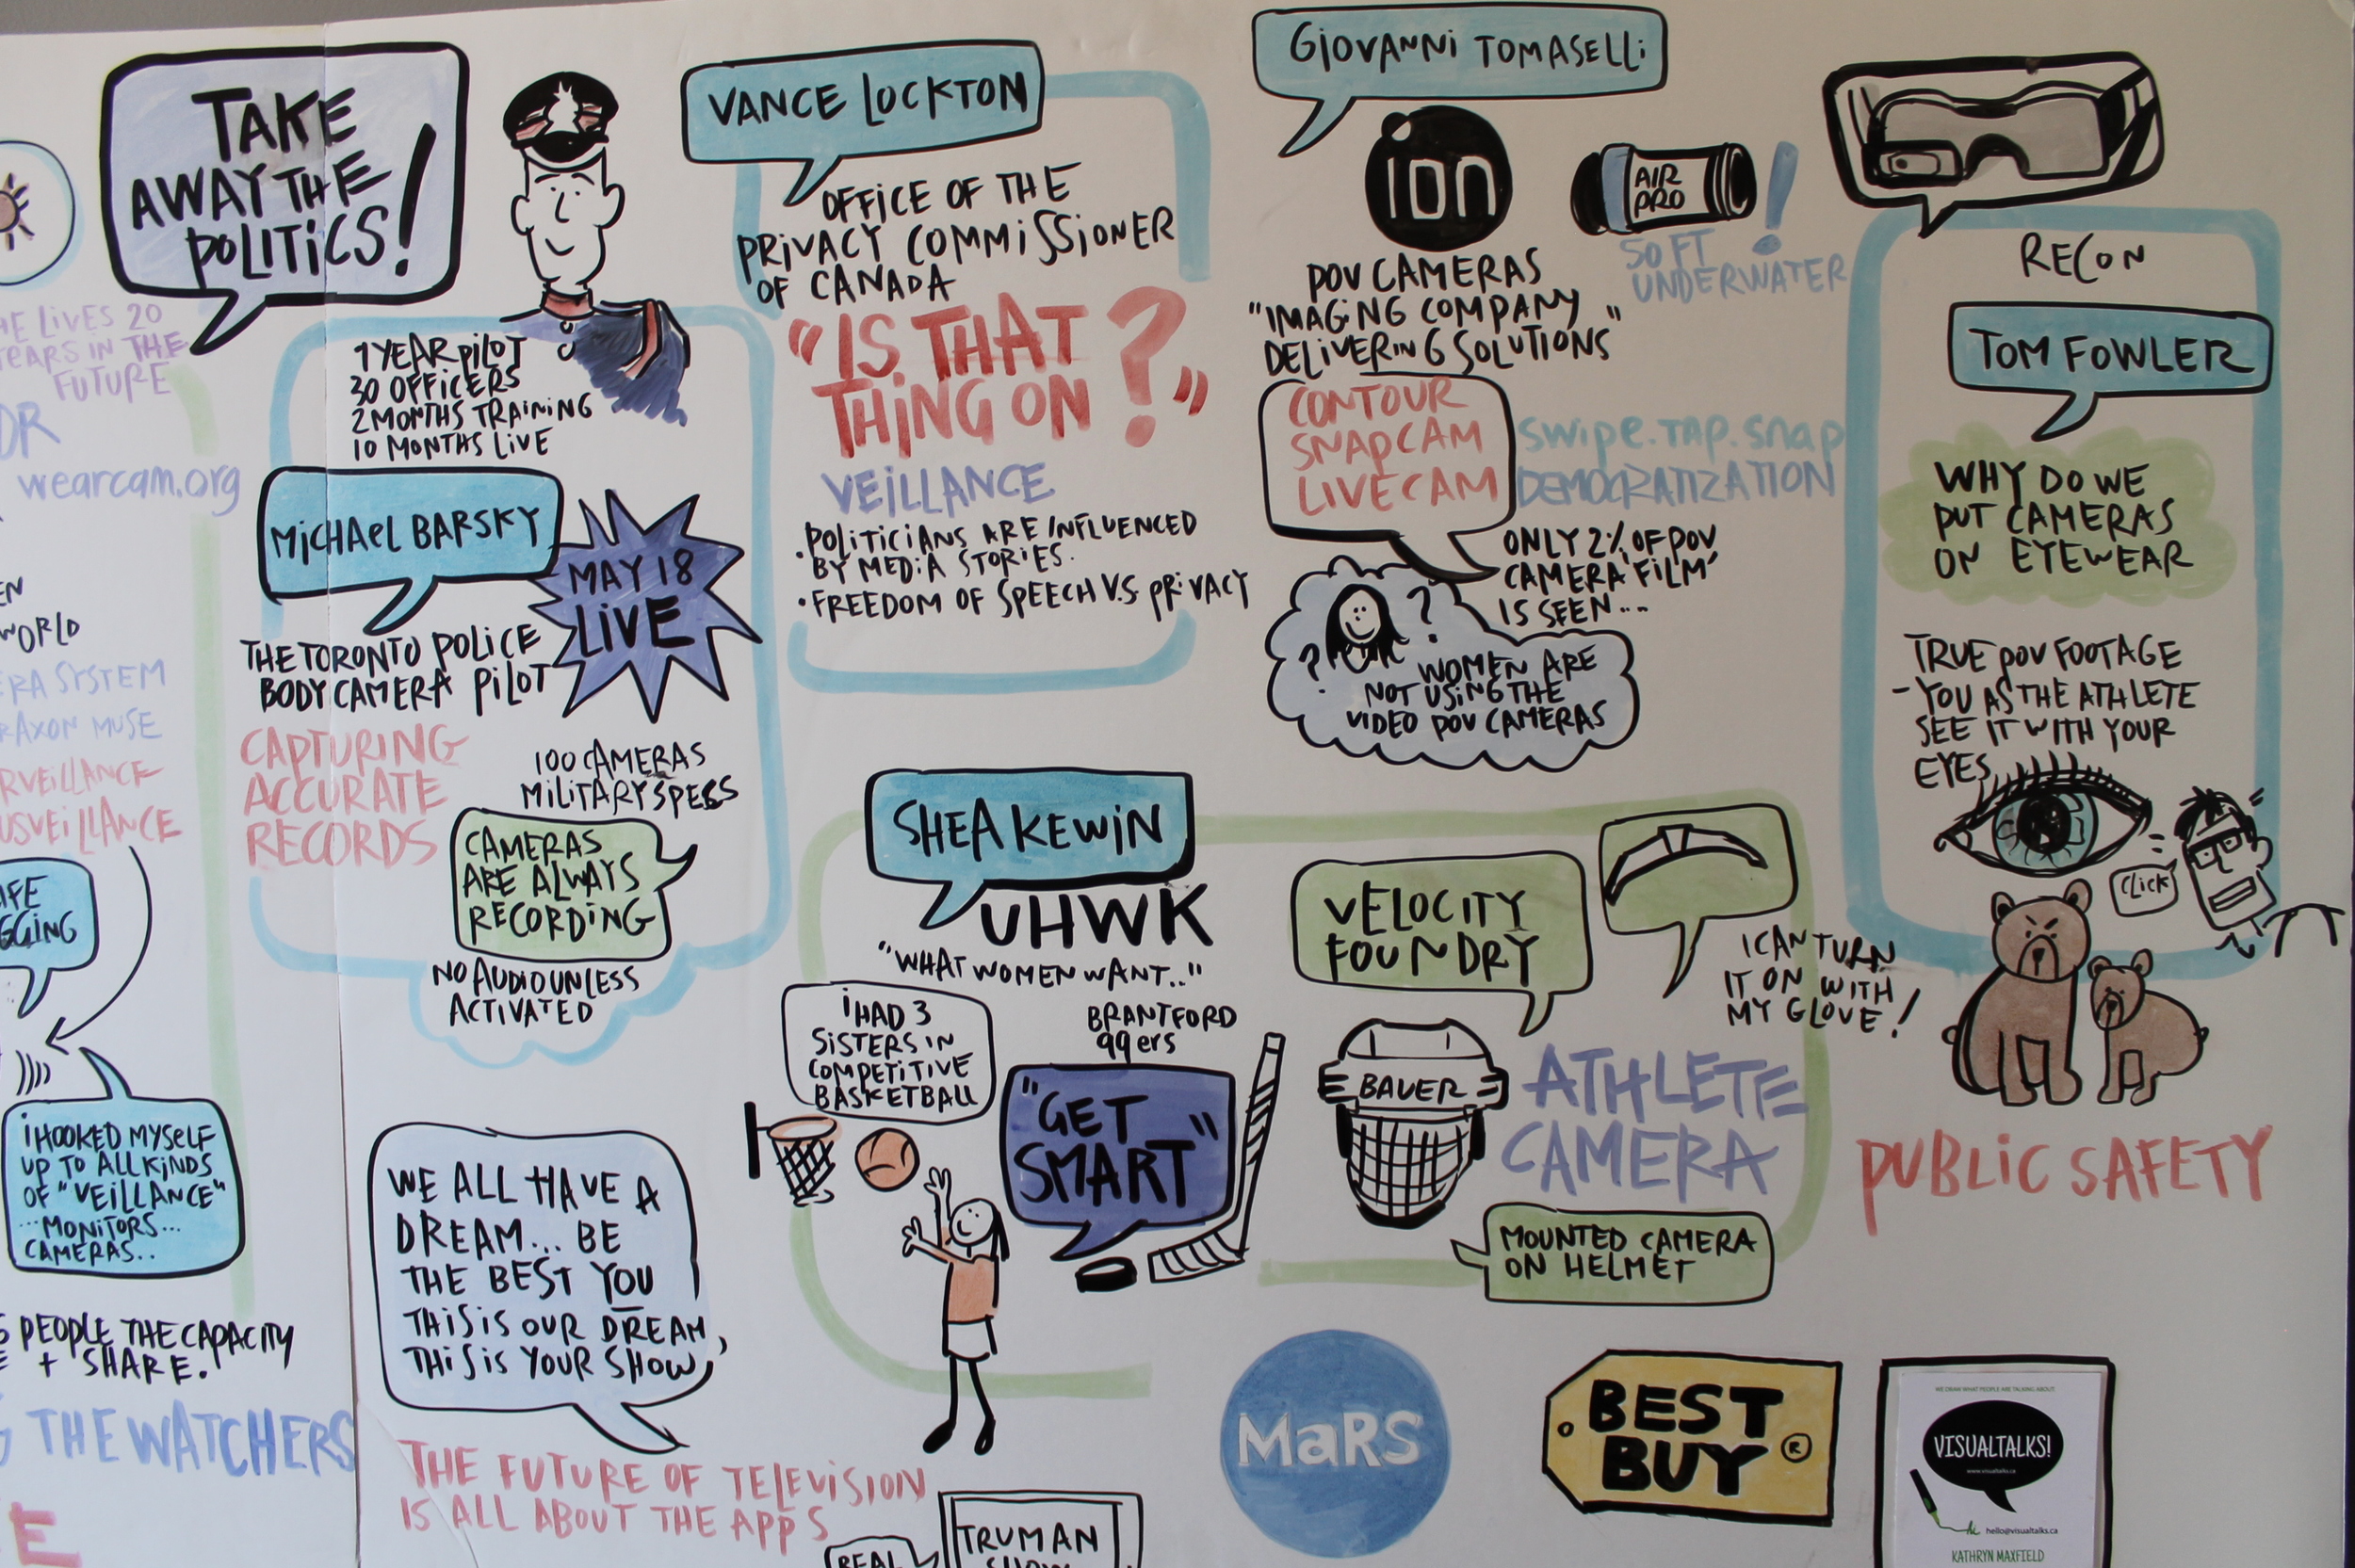 TAKE
AWAY THE
POLITICS!
HE LIVES 20
YEARS IN THE
FUTURE
wearcam.org
WORLD
ERA SYSTEM
MUSE
GGING
I HOOKED MYSELF
UP TO ALL KINDS
OF "VEILLANCE"
...MONITORS...
CAMERAS..
PEOPLE THE CAPACITY
+ SHARE.
THE WATCHERS
1 YEAR PILOT
30 OFFICERS
2 MONTHS TRAINING
10 MONTHS LIVE
MICHAEL BARSKY
MAY 18
LIVE
THE TORONTO POLICE
BODY CAMERA PILOT
CAPTURING
ACCURATE
RECORDS
100 CAMERAS
MILITARY SPECS
CAMERAS
ARE ALWAYS
RECORDING
NO AUDIO UNLESS
ACTIVATED
WE ALL HAVE A
DREAM... BE
THE BEST YOU
THIS IS OUR DREAM,
THIS IS YOUR SHOW,
THE FUTURE OF TELEVISION
IS ALL ABOUT THE APPS
REAL
TRUMAN
SHOW
VANCE LOCKTON
OFFICE OF THE
PRIVACY COMMISSIONER
OF CANADA
"IS THAT
THING ON?"
VEILLANCE
• POLITICIANS ARE INFLUENCED
BY MEDIA STORIES.
• FREEDOM OF SPEECH V.S. PRIVACY
SHEA KEWIN
UHWK
"WHAT WOMEN WANT.."
I HAD 3
SISTERS IN
COMPETITIVE
BASKETBALL
BRANTFORD
99ers
"GET
SMART"
VELOCITY
FOUNDRY
BAUER
ATHLETE
CAMERA
MOUNTED CAMERA
ON HELMET
I CAN TURN
IT ON WITH
MY GLOVE!
GIOVANNI TOMASELLI
ion
AIR
PRO
50 FT
UNDERWATER!
POV CAMERAS
"IMAGING COMPANY
DELIVERING SOLUTIONS"
CONTOUR
SNAPCAM
LIVECAM
SWIPE.TAP.SNAP
DEMOCRATIZATION
ONLY 2% OF POV
CAMERA 'FILM'
IS SEEN...
? ?
WOMEN ARE
NOT USING THE
VIDEO POV CAMERAS
RECON
TOM FOWLER
WHY DO WE
PUT CAMERAS
ON EYEWEAR
TRUE POV FOOTAGE
- YOU AS THE ATHLETE
SEE IT WITH YOUR
EYES
CLICK
PUBLIC SAFETY
MaRS
BEST
BUY ®
WE DRAW WHAT PEOPLE ARE TALKING ABOUT
VISUALTALKS!
www.visualtalks.ca
hi hello@visualtalks.ca
KATHRYN MAXFIELD